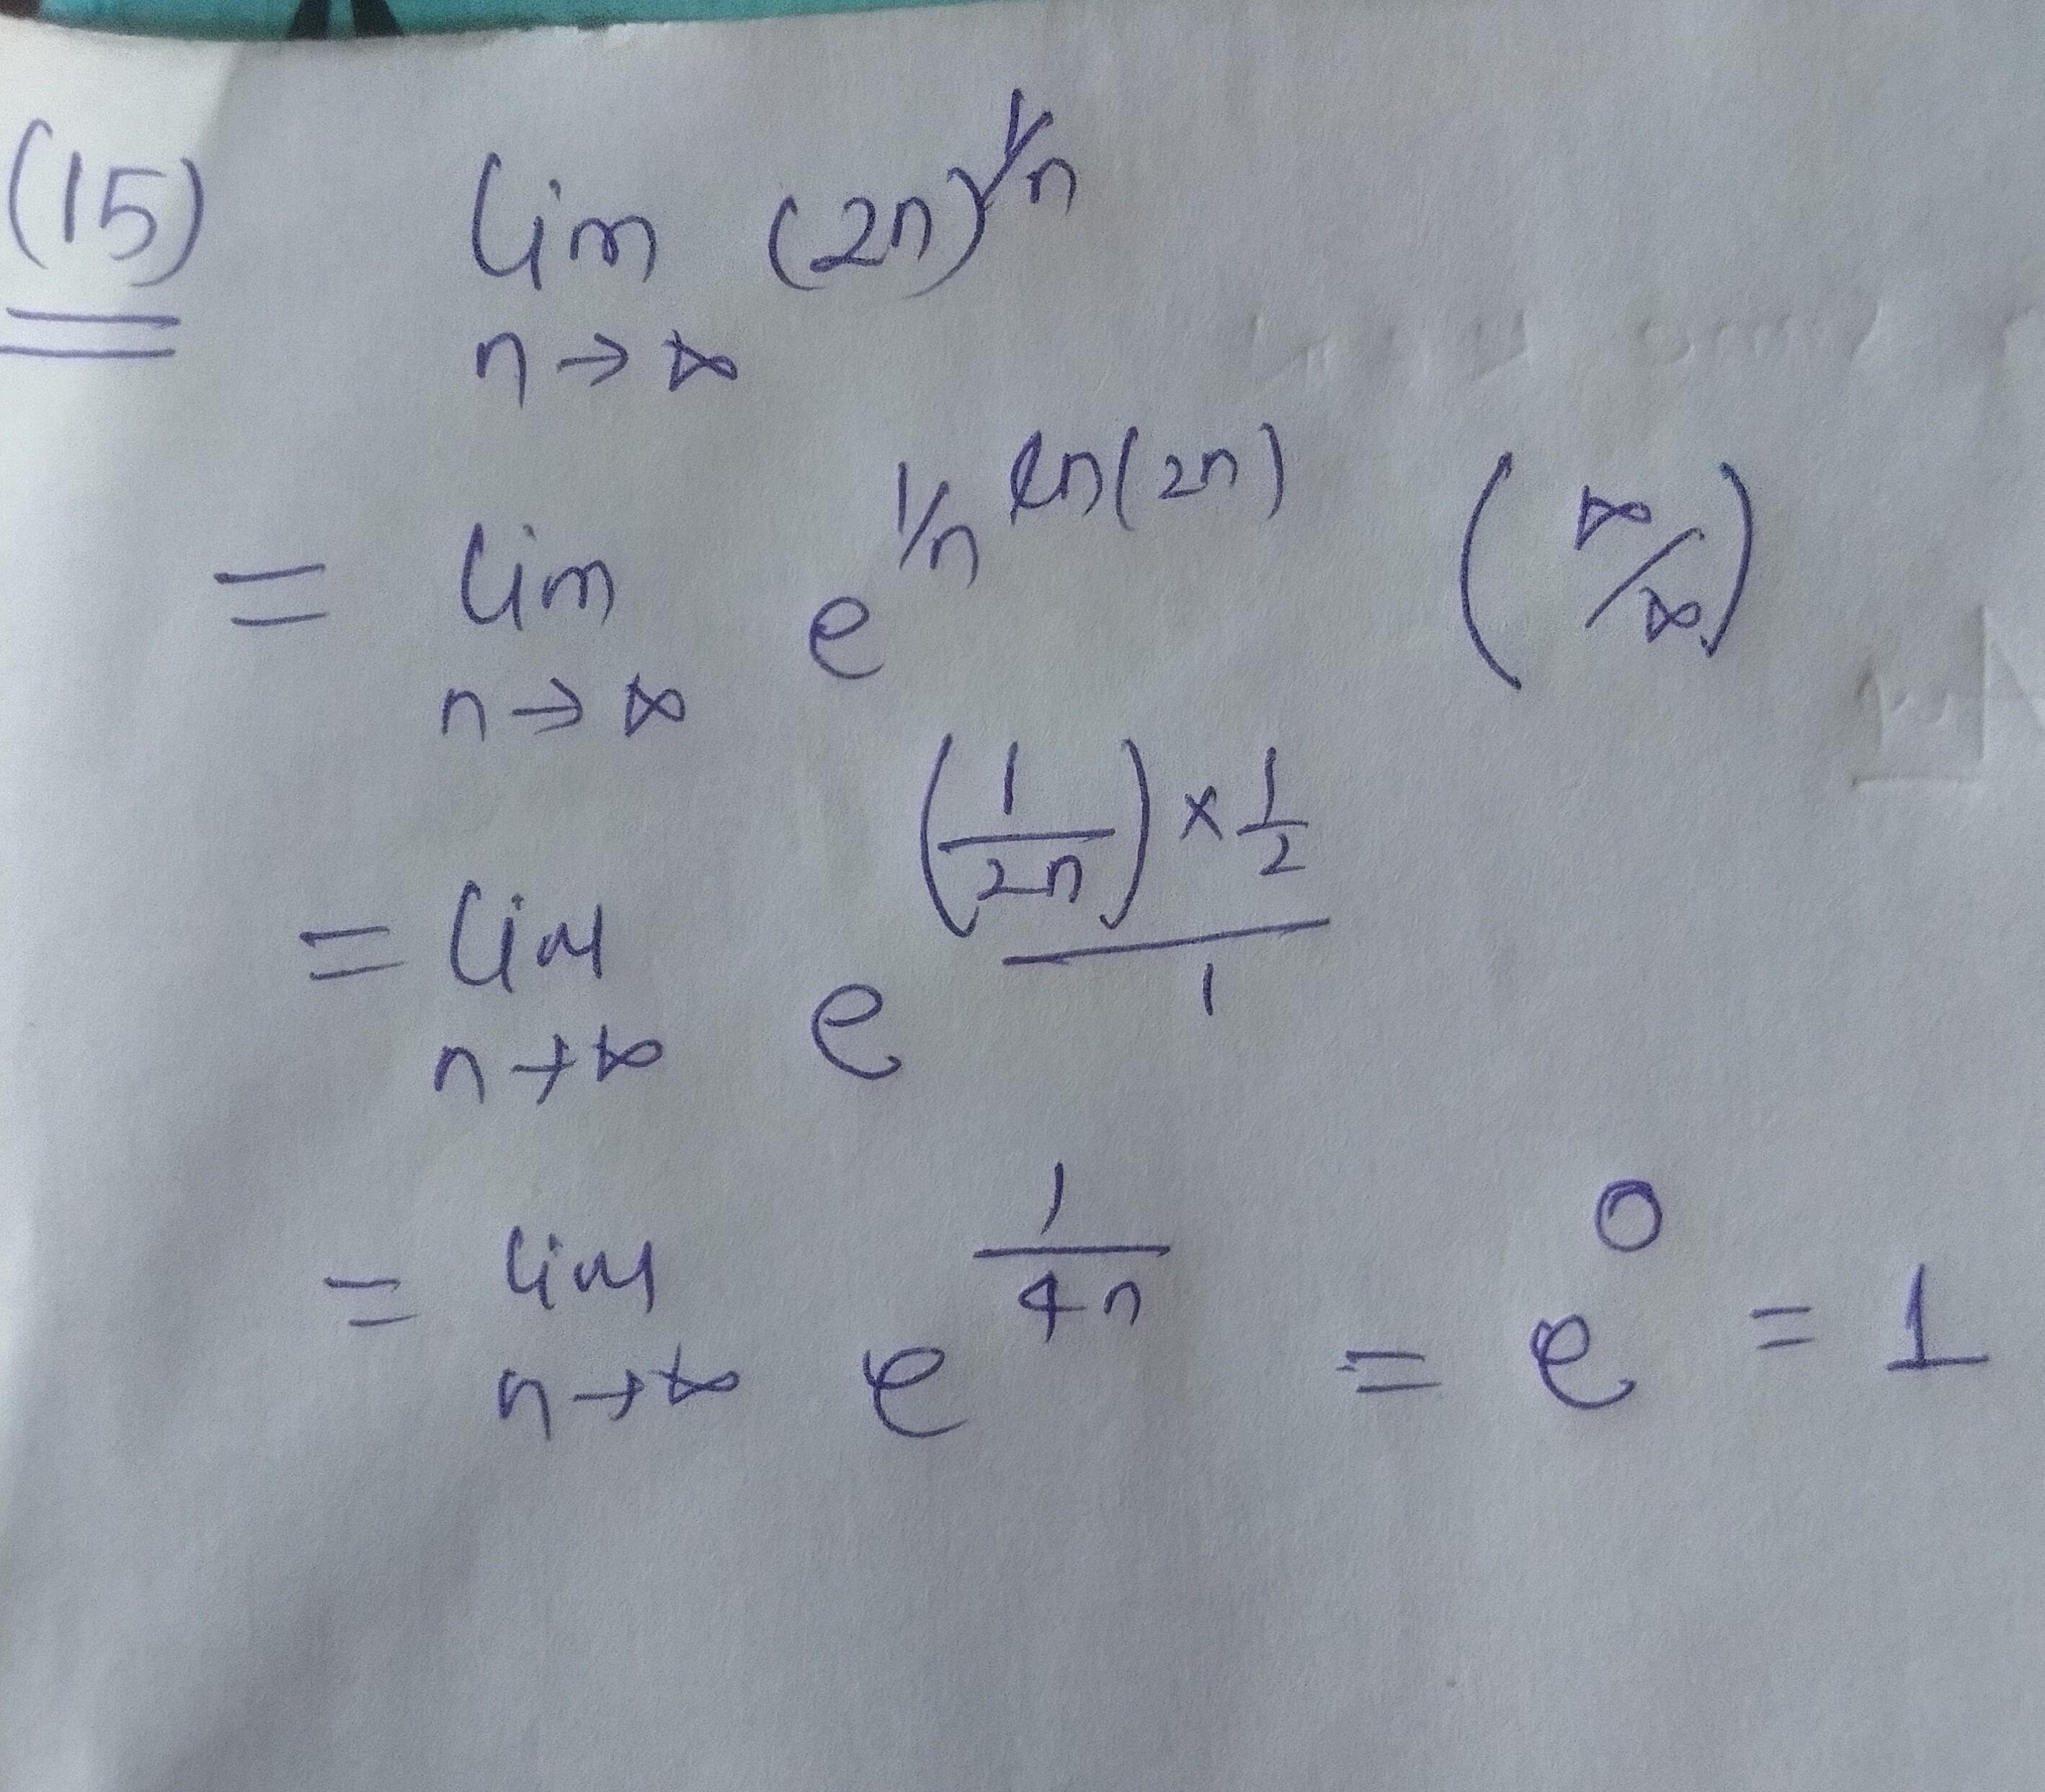 (15) lim (2n)^1/n
n→∞
= lim e^1/n ln(2n) (∞/∞)
n→∞
= lim e^((1/2n) × 1/2)/1
n→∞
= lim e^1/4n = e^0 = 1
n→∞